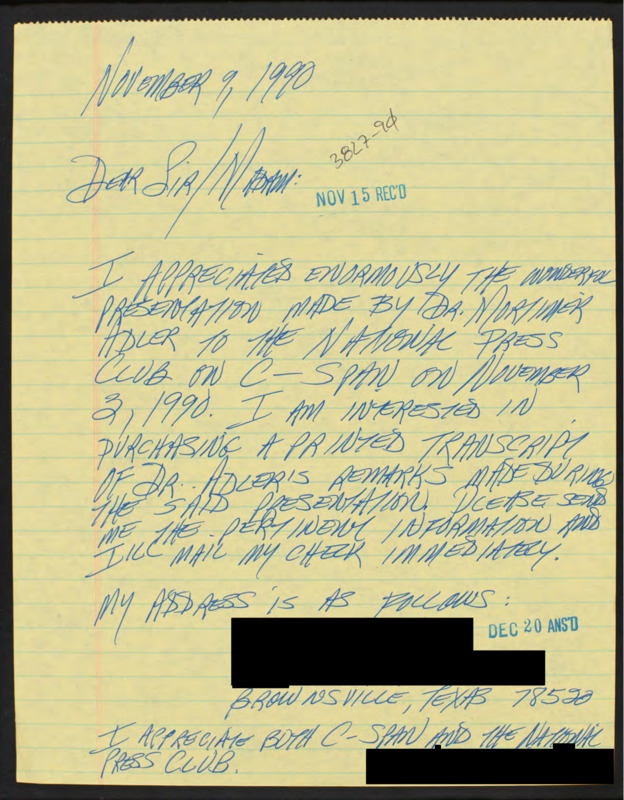 NOVEMBER 9, 1990
3827-94
DEAR SIR/MADAM:
NOV 15 REC'D
I APPRECIATED ENORMOUSLY THE WONDERFUL
PRESENTATION MADE BY DR. MORTIMER
ADLER TO THE NATIONAL PRESS
CLUB ON C-SPAN ON NOVEMBER
2, 1990. I AM INTERESTED IN
PURCHASING A PRINTED TRANSCRIPT
OF DR. ADLER'S REMARKS MADE DURING
THE SAID PRESENTATION. PLEASE SEND
ME THE PERTINENT INFORMATION AND
I'LL MAIL MY CHECK IMMEDIATELY.
MY ADDRESS IS AS FOLLOWS:
DEC 20 ANS'D
BROWNSVILLE, TEXAS 78520
I APPRECIATE BOTH C-SPAN AND THE NATIONAL
PRESS CLUB.